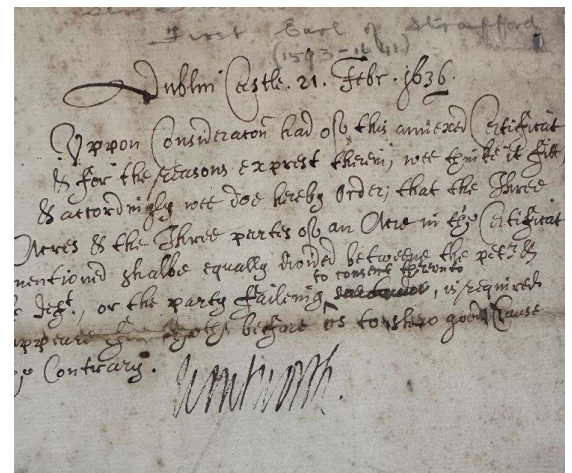 First Earl of Strafford
(1593-1641)
Dublin Castle. 21. Febr. 1636.
Vppon Consideracon had of this annexed Certificat
& for the reasons exprest therein, wee thinke it fitt,
& accordingly wee doe hereby Order, that the Three
Acres & the Three partes of an Acre in the Certificat
mentioned shalbe equally divided betweene the petr. &
deft., or the party faileing to consent thereonto, is required
appeare before vs to shew good Cause
Contrary.
Wentworth.